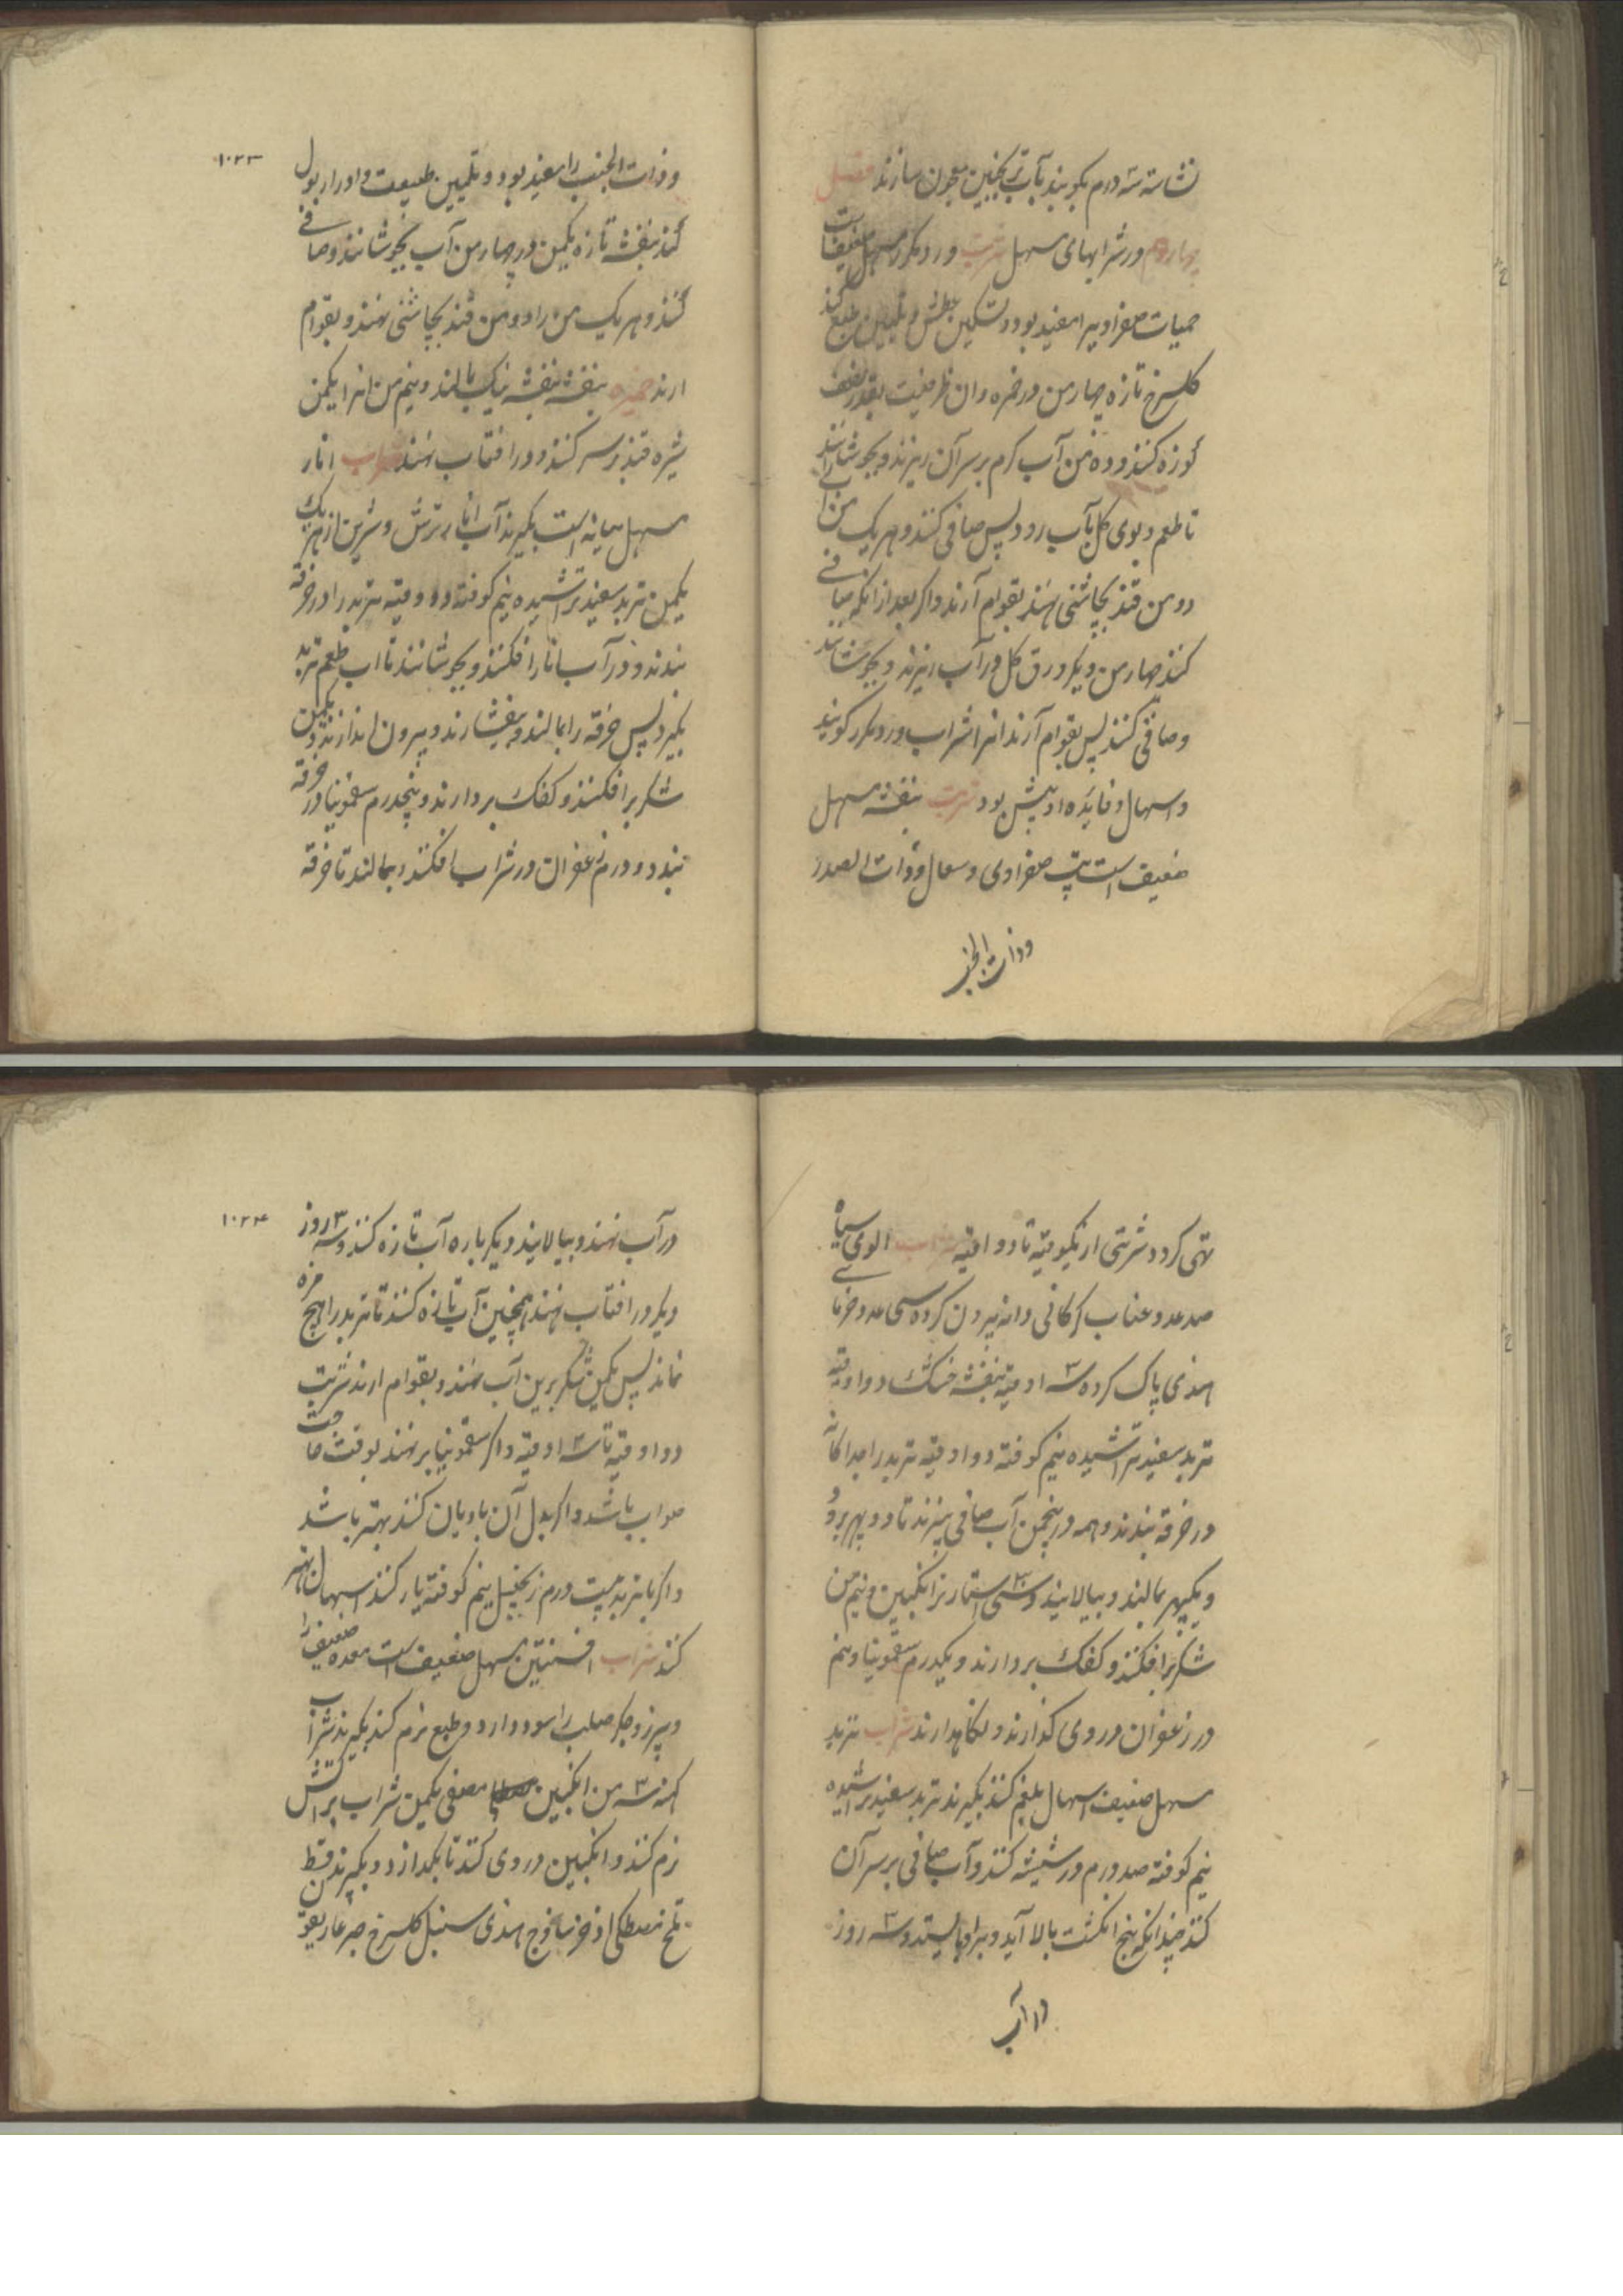 نشاسته سه درم بکوبند بآب ترنجبین معجون سازند فصل
چهارم در شرابهای مسهل شربت ورد مکرر مسهل ضعیف است
حمیات صفراویرا مفید بود و تسکین عطش و تلیین طبع کند
کلسرخ تازه چهار من در خمره وان ظرفیست بقدر نصف
کوزه کنند و ده من آب کرم بر سر آن ریزند و بجوشانند
تا طعم و بوی کل بآب رود پس صافی کنند و هر یک من را
دو من قند بچاشنی نهند بقوام آرند و اکر بعد از انکه صافی
کنند چهار من دیکر ورق کل در آب ریزند و بجوشانند
و صافی کنند پس بقوام آرند انرا شراب ورد مکرر کویند
و اسهال و فایده او بیش بود شربت بنفشه مسهل
ضعیف است تب صفراوی و سعال و ذات الصدر
و ذات الجنب
۱۰۲۳
و ذات الجنب را مفید بود و تلیین طبیعت و ادرار بول
کند بنفشه تازه یکمن در چهار من آب بجوشانند و صافی
کنند و هر یک من را دو من قند بچاشنی نهند و بقوام
ارند خمیره بنفشه بنفشه نیک بمالند و نیم من انرا یکمن
شیره قند بر سر کنند و در افتاب نهند شراب انار
مسهل میانه است بکیرند آب انار ترش و شیرین از هر یک
یکمن تربد سفید تراشیده نیم کوفته دو وقیه تربد را در خرقه
بندند و در آب انار افکنند و بجوشانند تا اب طعم تربد
بکیرد پس خرقه را بمالند و بیفشارند و بیرون اندازند و یکمن
شکر برافکنند و کفک بردارند و پنجدرم سقمونیا در خرقه
بندد و درم زعفران در شراب افکنند و بمالند تا خرقه
تهی کردد شربتی از یکوقیه تا دو اوقیه شراب الوی سیاه
صد عدد عناب کرکانی دانه بیرون کرده سی عدد خرمای
هندی پاک کرده سه اوقیه بنفشه خشک دو اوقیه
تربد سفید تراشیده نیم کوفته دو اوقیه تربد را جداکانه
در خرقه بندند و همه در پنجمن آب صافی بپزند تا دو بهر برود
و یکبهر بمالند و بپالایند و سی استار ترانکبین و نیم من
شکر برافکنند و کفک بردارند و یکدرم سقمونیا و نیم
درم زعفران در وی کذارند و نکاهدارند شراب تربد
مسهل ضعیف اسهال بلغم کند بکیرند تربد سفید تراشیده
نیم کوفته صد درم در شیشه کنند و آب صافی بر سر آن
کنند چندانکه پنج انکشت بالا آید و برو بایستد و سه روز
در آب
۱۰۲۴
در آب نهند و بپالایند و یکر باره آب تازه کنند و سه روز
دیکر در افتاب نهند همچنین آب تازه کنند تا تربد را هیچ مزه
نماند پس یکمن شکر برین آب نهند و بقوام ارند شربت
دو اوقیه تا سه اوقیه و اکر سقمونیا برنهند بوقت حاجت
صواب باشد و اکر بدل آن بادیان کنند بهتر باشد
و اکر با تربد بیست درم زنجبیل نیم کوفته یار کنند اسهال بهتر
کند شراب افسنتین مسهل ضعیف است معده ضعیف را
و سپرز و جکر صلب را سود دارد و طبع نرم کند بکیرند شراب
کهنه سه من انکبین مصفی یکمن شراب بر آتش
نرم کنند و انکبین در وی کنند تا بکدازد و بکیرند قسط
تلخ مصطکی اذخر ساذج هندی سنبل کلسرخ صبر غاریقون